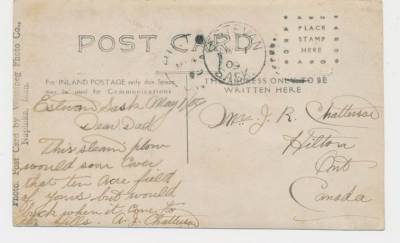 POST CARD
ESTEVAN
09
SASK
PLACE
STAMP
HERE
FOR INLAND POSTAGE only this Space
may be used for Communications
THE ADDRESS ONLY TO BE
WRITTEN HERE
Photo. Post Card by Photo Co.,
Napinka, Man.
Estevan Sask May
Dear Dad
This steam plow
would soon cover
that ten acre field
of yours but would
buck when it come to
the hills. A. J. Chatterson
J. R. Chatterson
Hilton
Ont
Canada